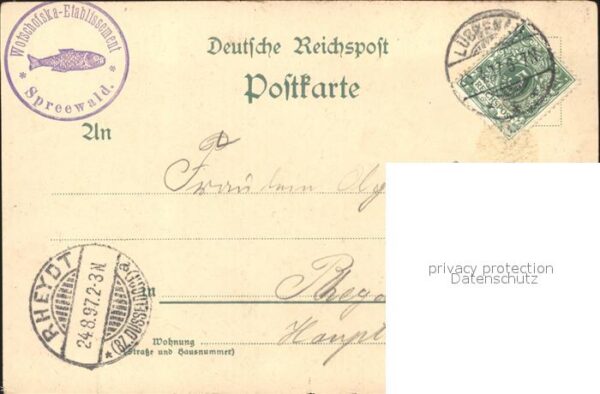 Wotschofska-Etablissement
* Spreewald. *
Deutsche Reichspost
Postkarte
LÜBBEN
An
Fräulein
privacy protection
Datenschutz
RHEYDT
24.8.97.2-3N
* (BZ.DÜSSELDORF) a
in
Rhey
Haupt
Wohnung
(Straße und Hausnummer)